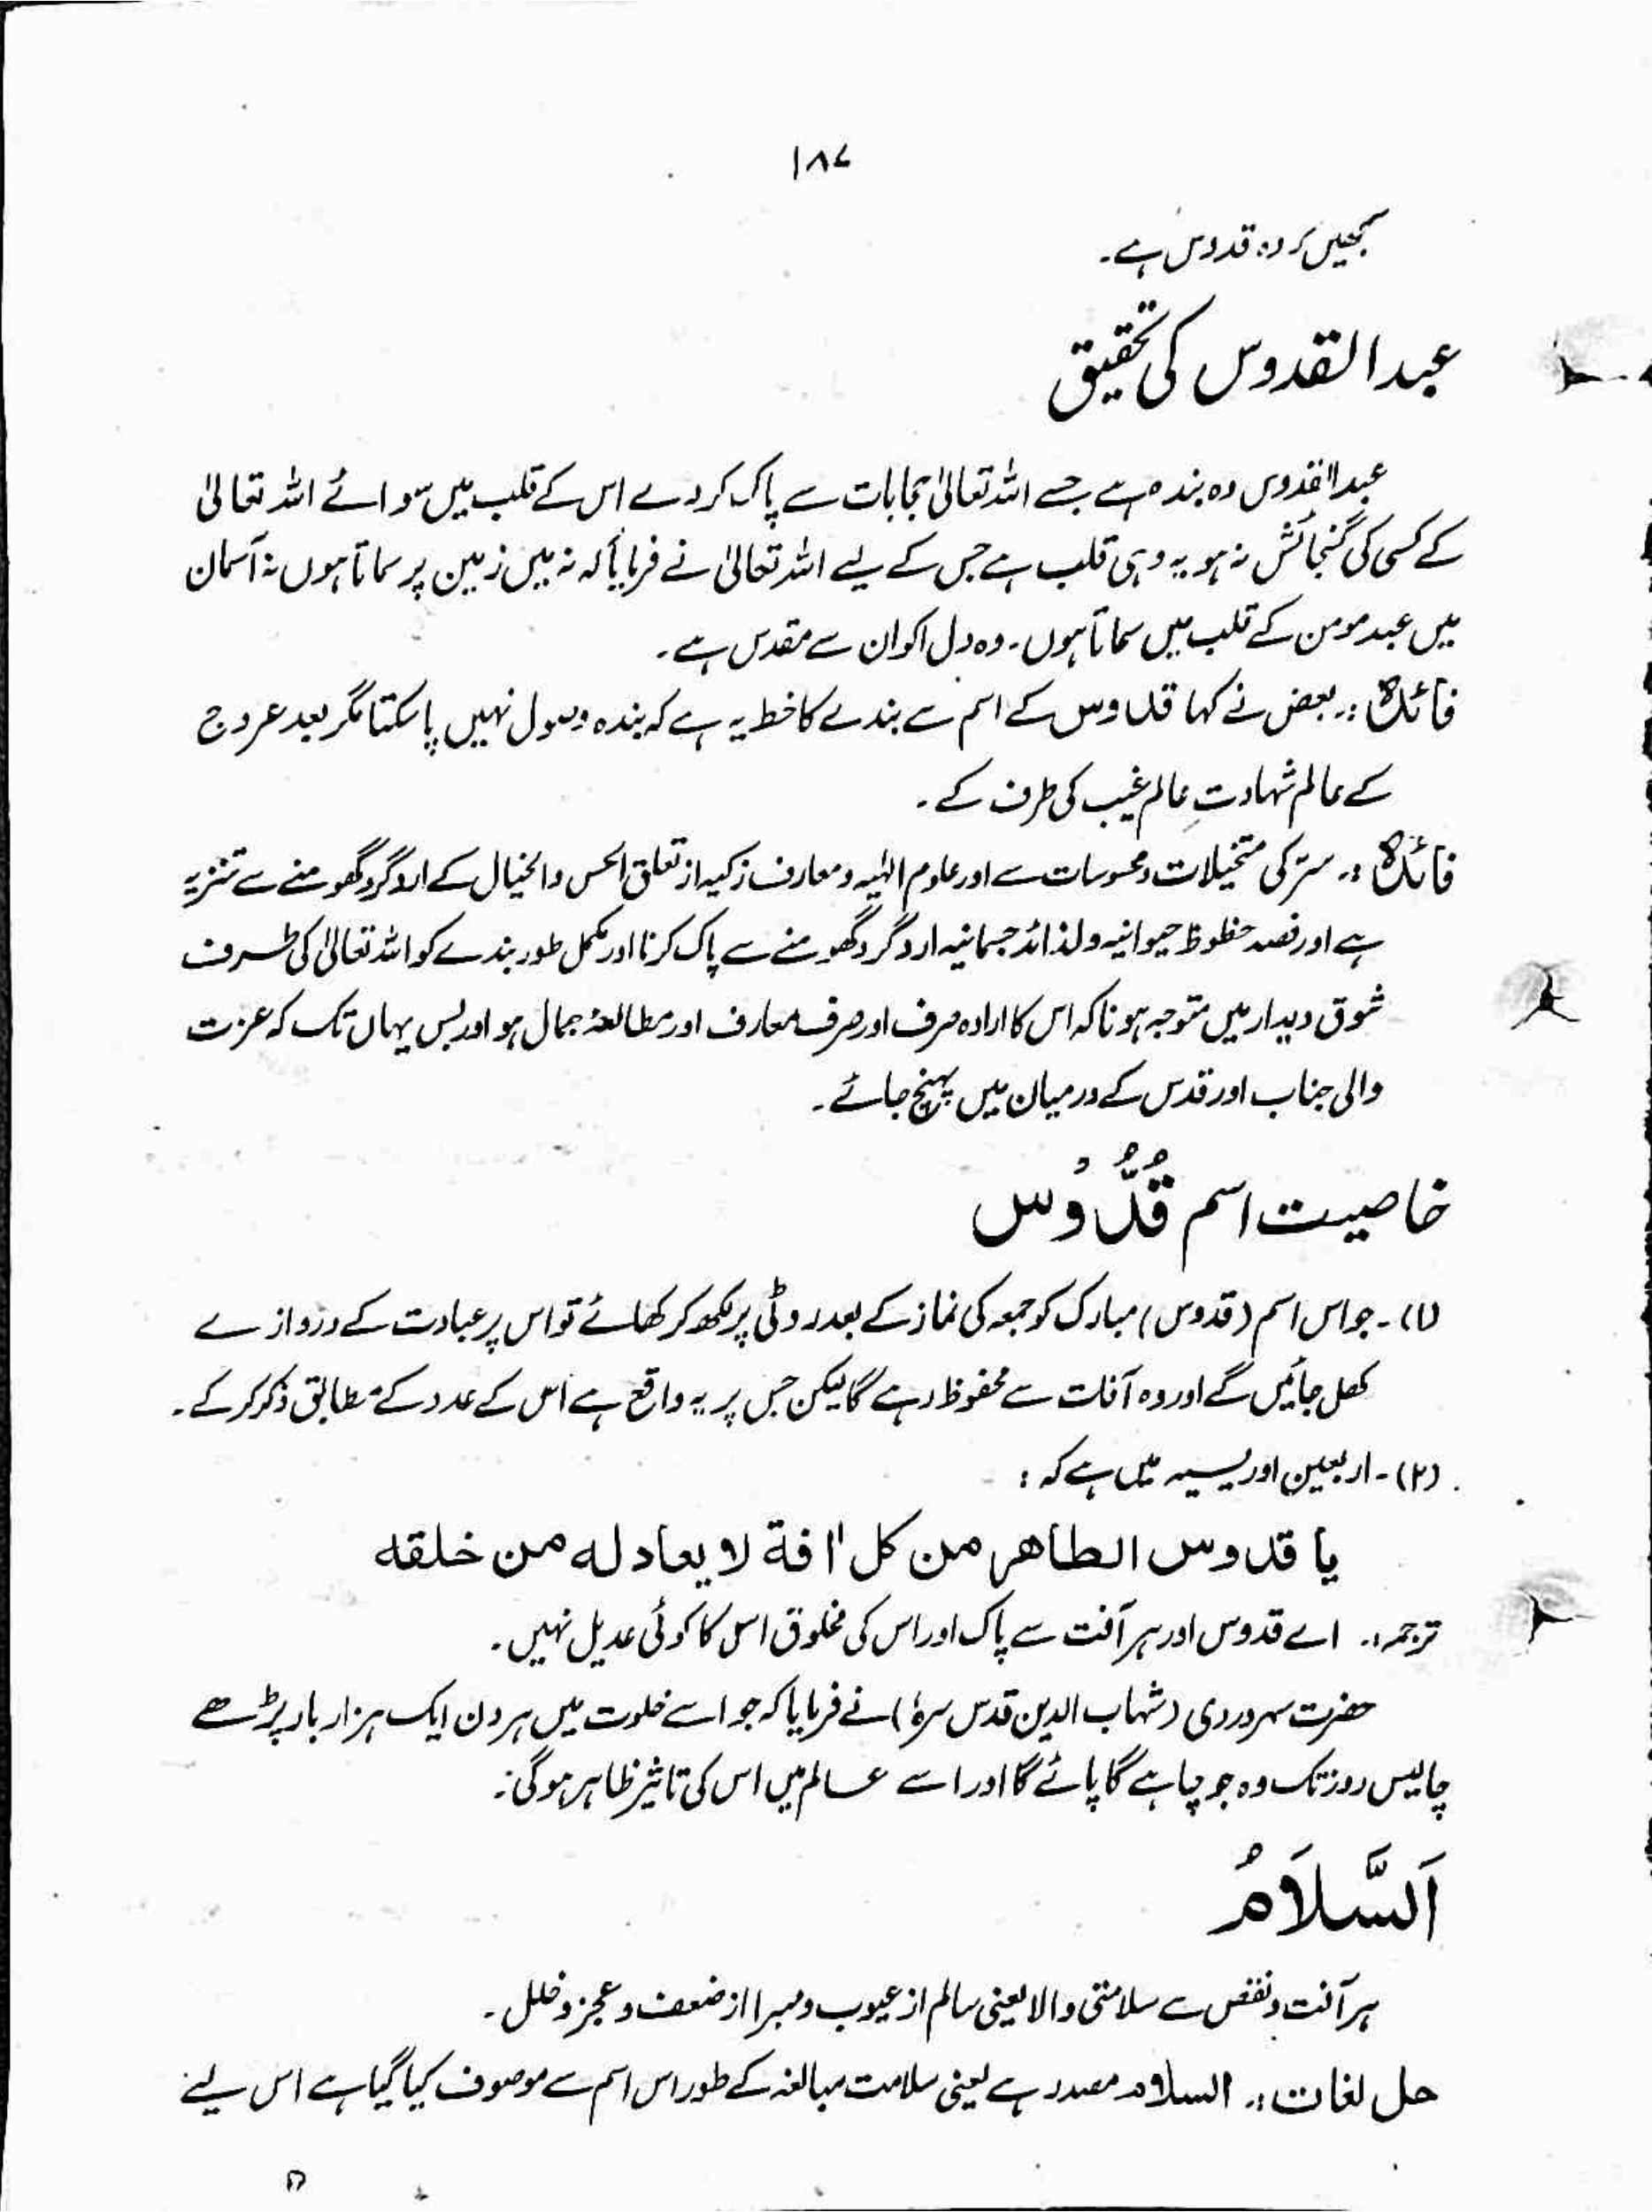 ۱۸۷
سمجھیں کہ وہ قدوس ہے۔
عبدالقدوس کی تحقیق
عبدالقدوس وہ بندہ ہے جسے اللہ تعالیٰ حجابات سے پاک کر دے اس کے قلب میں سوائے اللہ تعالیٰ
کے کسی کی گنجائش نہ ہو یہ وہی قلب ہے جس کے لیے اللہ تعالیٰ نے فرمایا کہ نہ میں زمین پر سماتا ہوں نہ آسمان
میں عبد مومن کے قلب میں سماتا ہوں۔ وہ دل اکوان سے مقدس ہے۔
فائدہ:۔ بعض نے کہا قدوس کے اسم سے بندے کا خط یہ ہے کہ بندہ وصول نہیں پا سکتا مگر بعد عروج
کے عالم شہادت عالم غیب کی طرف کے۔
فائدہ:۔ سرّ کی متخیلات و محسوسات سے اور علوم الٰہیہ و معارف زکیہ از تعلق الحس والخیال کے ارد گرد گھومنے سے تنزیہ
ہے اور قصد حظوظ حیوانیہ و لذائذ جسمانیہ ارد گرد گھومنے سے پاک کرنا اور مکمل طور بندے کو اللہ تعالیٰ کی طرف
شوق دیدار میں متوجہ ہونا کہ اس کا ارادہ صرف اور صرف معارف اور مطالعۂ جمال ہو اور بس یہاں تک کہ عزت
والی جناب اور قدس کے درمیان میں پہنچ جائے۔
خاصیت اسم قُدُّوُس
(۱)۔ جو اس اسم (قدوس) مبارک کو جمعہ کی نماز کے بعد روٹی پر لکھ کر کھائے تو اس پر عبادت کے دروازے
کھل جائیں گے اور وہ آفات سے محفوظ رہے گا لیکن جس پر یہ واقع ہے اس کے عدد کے مطابق ذکر کر کے۔
(۲)۔ اربعین اوریسیہ میں ہے کہ:
یا قدوس الطاهر من کل اٰفة لا یعادله من خلقه
ترجمہ:۔ اے قدوس اور ہر آفت سے پاک اور اس کی مخلوق اس کا کوئی عدیل نہیں۔
حضرت سہروردی (شہاب الدین قدس سرہٗ) نے فرمایا کہ جو اسے خلوت میں ہر دن ایک ہزار بار پڑھے
چالیس روز تک وہ جو چاہے گا پائے گا اور اسے عالم میں اس کی تاثیر ظاہر ہوگی:
اَلسَّلَامُ
ہر آفت و نقص سے سلامتی والا یعنی سالم از عیوب و مبرا از ضعف و عجز و خلل۔
حل لغات:۔ السلام مصدر ہے یعنی سلامت مبالغہ کے طور اس اسم سے موصوف کیا گیا ہے اس لیے